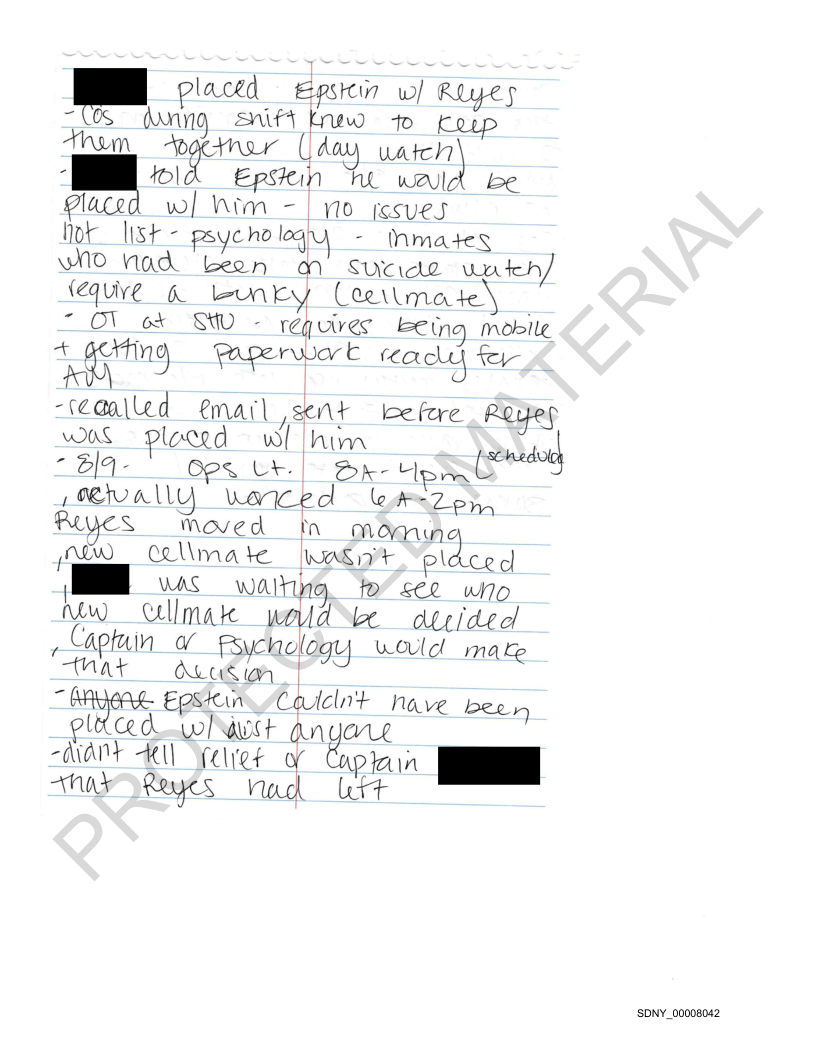 placed Epstein w/ Reyes
- COs during shift knew to keep
them together (day watch)
- told Epstein he would be
placed w/ him - no issues
hot list - psychology - inmates
who had been on suicide watch/
require a bunky (cellmate)
- OT at SHU - requires being mobile
+ getting paperwork ready for
AW
- recalled email, sent before Reyes
was placed w/ him
- 8/9 - Ops Lt. 8A-4pm (scheduled
, actually worked 6A-2pm
Reyes moved in morning
, new cellmate wasn't placed
, was waiting to see who
new cellmate would be decided
, Captain or Psychology would make
that decision
- Anyone Epstein couldn't have been
placed w/ just anyone
- didn't tell relief or Captain
that Reyes had left
PROTECTED MATERIAL
SDNY_00008042